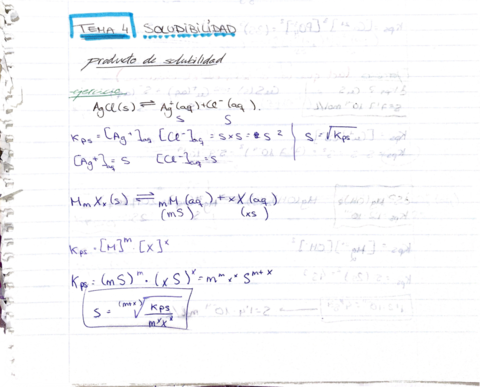 TEMA 4 SOLUDIBILIDAD
producto de solubilidad
ejercicio
AgCl(s) ⇌ Ag⁺(aq)+Cl⁻(aq).
S S
Kps = [Ag⁺]aq [Cl⁻]aq = s×s = s² | s = √Kps
[Ag⁺]aq = s [Cl⁻]aq = s
MmXx(s) ⇌ mM(aq) + xX(aq)
(mS) (xs)
Kps = [M]ᵐ · [X]ˣ
Kps = (mS)ᵐ · (xS)ˣ = mᵐ xˣ Sᵐ⁺ˣ
S = ⁽ᵐ⁺ˣ⁾√(Kps / mˣxˣ)